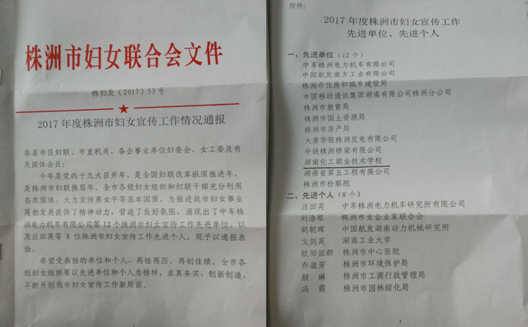 株洲市妇女联合会文件
株妇发〔2017〕53号
2017年度株洲市妇女宣传工作情况通报
各县市区妇联、市直机关、各企事业单位妇委会、女工委及有
关团体会员:
今年是党的十九大召开年,是全国妇联改革纵深推进年,
是株洲市妇联换届年,全市各级妇女组织和妇联干部充分利用
各类媒体,大力宣传男女平等基本国策,为推进我市妇女事业
蓬勃发展提供了精神动力,营造了良好氛围,涌现出了中车株
洲电力机车有限公司等12个株洲市妇女宣传工作先进单位,以
及汪田英等8位株洲市妇女宣传工作先进个人,现予以通报表
彰。
希望受表彰的单位和个人,再接再厉,再创佳绩,全市各
级妇女组织要以先进单位和个人为榜样,求真务实,创新创造,
不断开创我市妇女宣传工作新局面。
附件:
2017年度株洲市妇女宣传工作
先进单位、先进个人
一、先进单位(12个)
中车株洲电力机车有限公司
中国航发南方工业有限公司
株洲市住房和城乡建设局
中国移动通信集团湖南有限公司株洲分公司
株洲市教育局
株洲市国土资源局
株洲市房产局
大唐华银株洲发电有限公司
中铁株洲桥梁有限公司
湖南化工职业技术学校
湖南省第五工程有限公司
株洲市检察院
二、先进个人(8个)
汪田英 中车株洲电力机车研究所有限公司
刘海琴 株洲市女企业家联合会
胡朝晖 中国航发湖南动力机械研究所
文剑英 湖南工业大学
欧阳姣群 株洲市中心医院
乔淑芳 株洲市环境保护局
颜琳 株洲市工商行政管理局
冯霞 株洲市园林绿化局
1